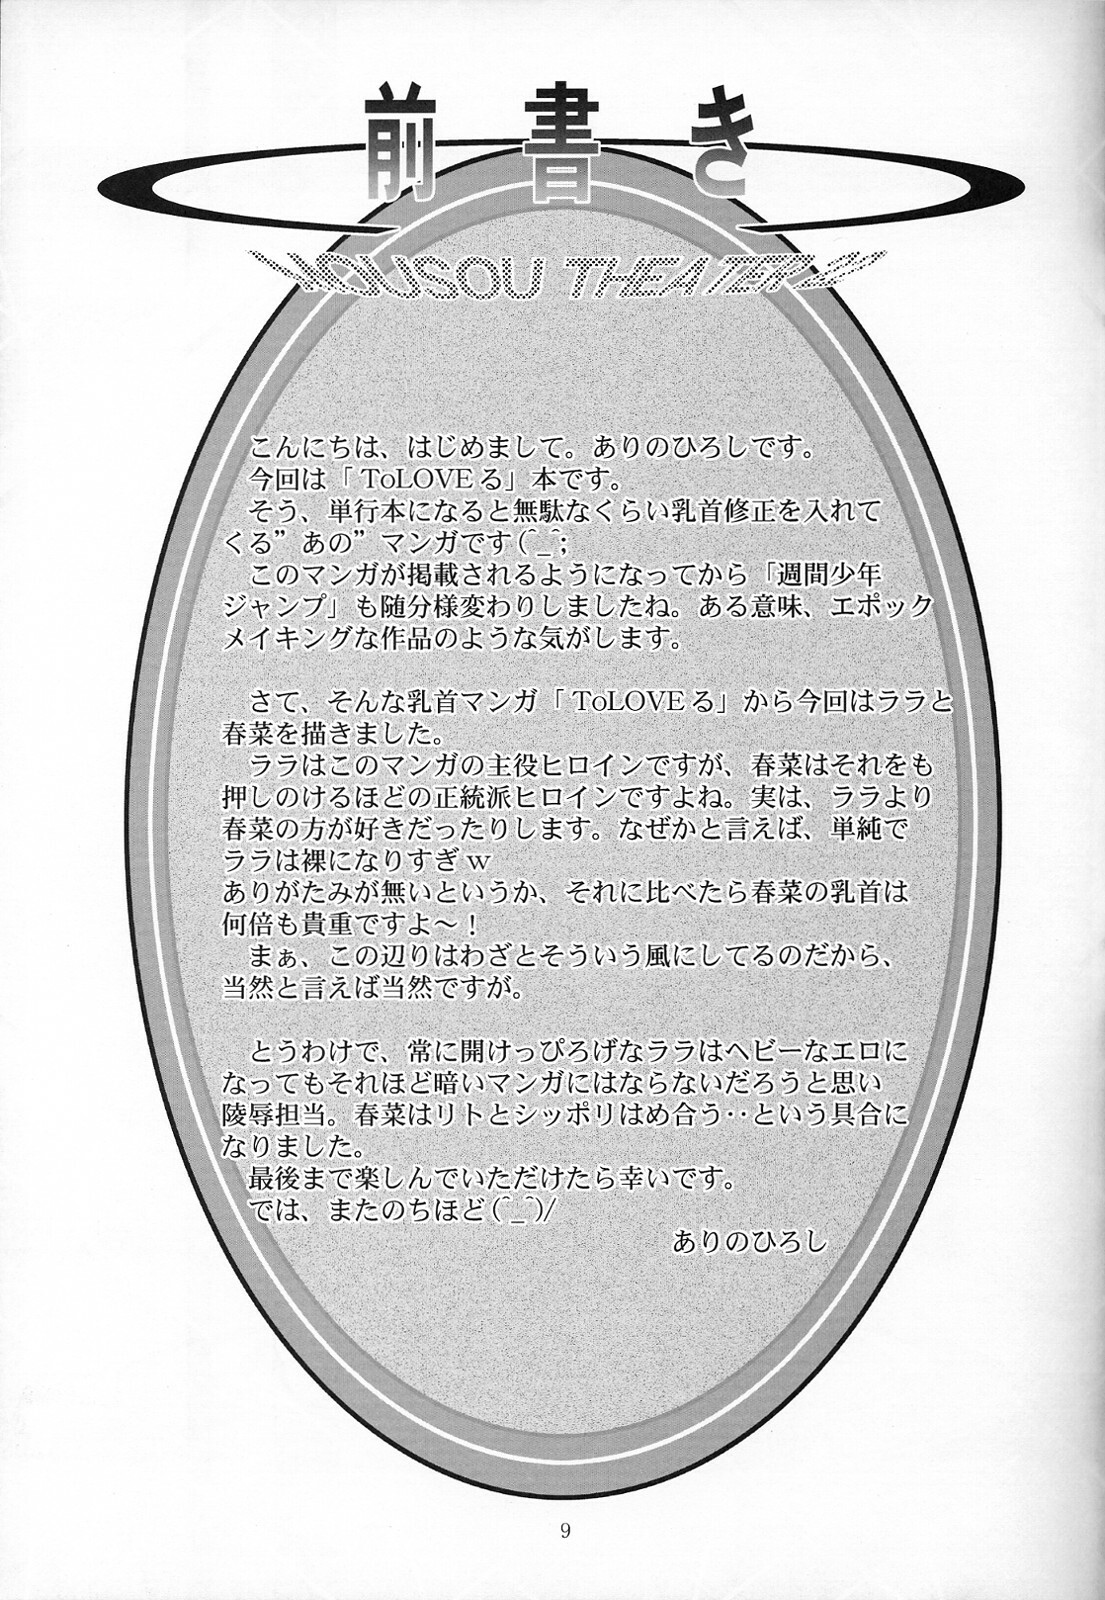 前書き
MOUSOU THEATER
こんにちは、はじめまして。ありのひろしです。
今回は「ToLOVEる」本です。
そう、単行本になると無駄なくらい乳首修正を入れて
くる”あの”マンガです(^_^;
このマンガが掲載されるようになってから「週間少年
ジャンプ」も随分様変わりしましたね。ある意味、エポック
メイキングな作品のような気がします。
さて、そんな乳首マンガ「ToLOVEる」から今回はララと
春菜を描きました。
ララはこのマンガの主役ヒロインですが、春菜はそれをも
押しのけるほどの正統派ヒロインですよね。実は、ララより
春菜の方が好きだったりします。なぜかと言えば、単純で
ララは裸になりすぎｗ
ありがたみが無いというか、それに比べたら春菜の乳首は
何倍も貴重ですよ〜！
まぁ、この辺りはわざとそういう風にしてるのだから、
当然と言えば当然ですが。
とうわけで、常に開けっぴろげなララはヘビーなエロに
なってもそれほど暗いマンガにはならないだろうと思い
陵辱担当。春菜はリトとシッポリはめ合う‥という具合に
なりました。
最後まで楽しんでいただけたら幸いです。
では、またのちほど(^_^)/
ありのひろし
9